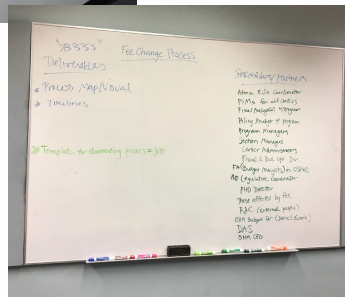 "8335"
Fee Change Process
Deliverables
* Process Map/Visual
* Timelines
* Template for documenting process =
Stakeholders/Partners
Admin Rule Coordinator
PSMs for all centers
Fiscal Analyst of program
Policy Analyst of program
Program Managers
Section Managers
Center Administrators
Fiscal & Bus. Ops Dir.
(Budget Analysts) in
Legislative Coordinator
PHD Director
Those affected by fee
RAC (external people)
OHA Budget Dir
DAS
OHA CFO